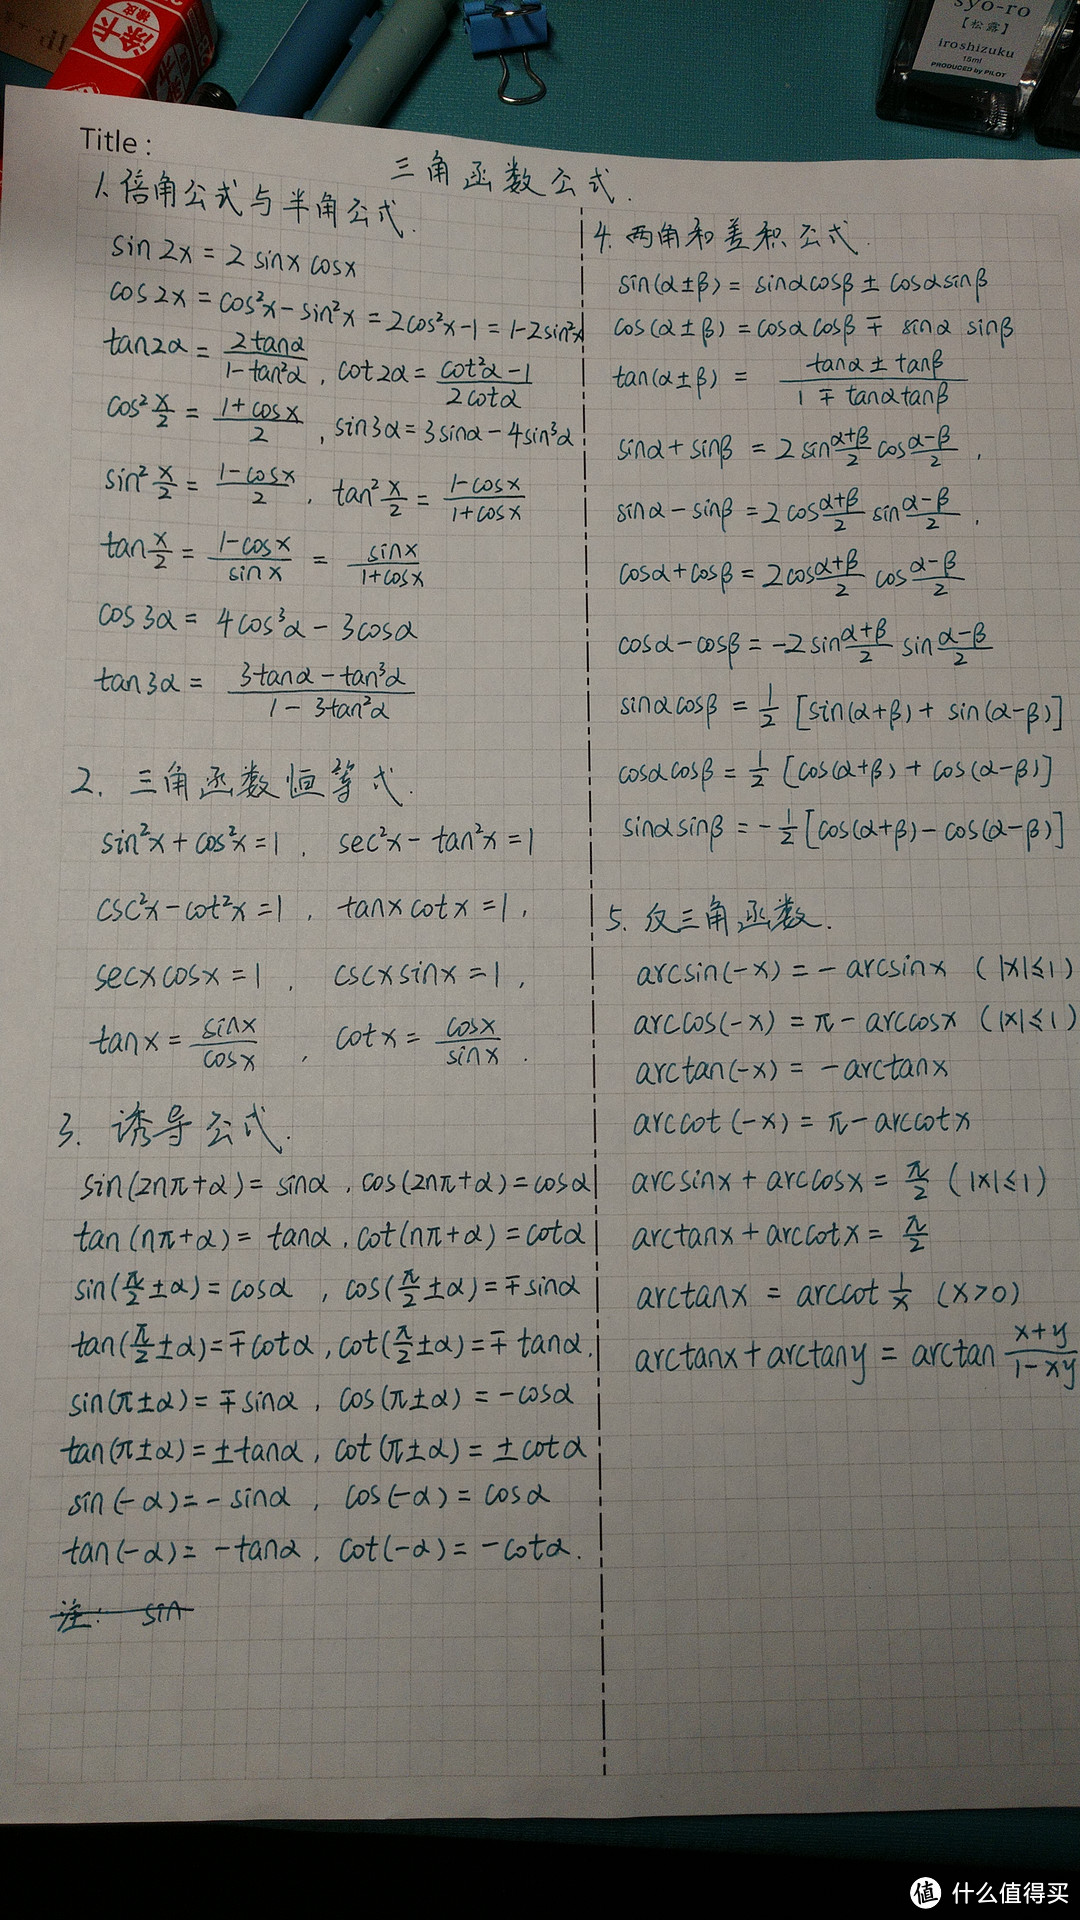 涂卡
橡皮
syo-ro
【松露】
iroshizuku
15ml
PRODUCED by PILOT
Title :
三角函数公式.
1. 倍角公式与半角公式.
sin2x = 2 sinx cosx
cos2x = cos²x - sin²x = 2cos²x - 1 = 1 - 2sin²x
tan2α = 2tanα / (1 - tan²α) , cot2α = (cot²α - 1) / 2cotα
cos² x/2 = (1 + cosx) / 2 , sin3α = 3sinα - 4sin³α
sin² x/2 = (1 - cosx) / 2 . tan² x/2 = (1 - cosx) / (1 + cosx)
tan x/2 = (1 - cosx) / sinx = sinx / (1 + cosx)
cos3α = 4cos³α - 3cosα
tan3α = (3tanα - tan³α) / (1 - 3tan²α)
2. 三角函数恒等式.
sin²x + cos²x = 1 . sec²x - tan²x = 1
csc²x - cot²x = 1 , tanx cotx = 1 ,
secx cosx = 1 , cscx sinx = 1 ,
tanx = sinx / cosx , cotx = cosx / sinx .
3. 诱导公式.
sin(2nπ+α) = sinα , cos(2nπ+α) = cosα
tan(nπ+α) = tanα , cot(nπ+α) = cotα
sin(π/2 ± α) = cosα , cos(π/2 ± α) = ∓sinα
tan(π/2 ± α) = ∓cotα , cot(π/2 ± α) = ∓tanα.
sin(π±α) = ∓sinα , cos(π±α) = -cosα
tan(π±α) = ±tanα , cot(π±α) = ±cotα
sin(-α) = -sinα , cos(-α) = cosα
tan(-α) = -tanα , cot(-α) = -cotα.
注: sin
4. 两角和差积公式.
sin(α±β) = sinαcosβ ± cosαsinβ
cos(α±β) = cosαcosβ ∓ sinα sinβ
tan(α±β) = (tanα ± tanβ) / (1 ∓ tanαtanβ)
sinα + sinβ = 2 sin (α+β)/2 cos (α-β)/2 ,
sinα - sinβ = 2 cos (α+β)/2 sin (α-β)/2 ,
cosα + cosβ = 2cos (α+β)/2 cos (α-β)/2
cosα - cosβ = -2 sin (α+β)/2 sin (α-β)/2
sinαcosβ = 1/2 [sin(α+β) + sin(α-β)]
cosαcosβ = 1/2 [cos(α+β) + cos(α-β)]
sinαsinβ = -1/2 [cos(α+β) - cos(α-β)]
5. 反三角函数.
arcsin(-x) = -arcsinx (|x|≤1)
arccos(-x) = π - arccosx (|x|≤1)
arctan(-x) = -arctanx
arccot(-x) = π - arccotx
arcsinx + arccosx = π/2 (|x|≤1)
arctanx + arccotx = π/2
arctanx = arccot 1/x (x>0)
arctanx + arctany = arctan (x+y) / (1-xy)
值 什么值得买